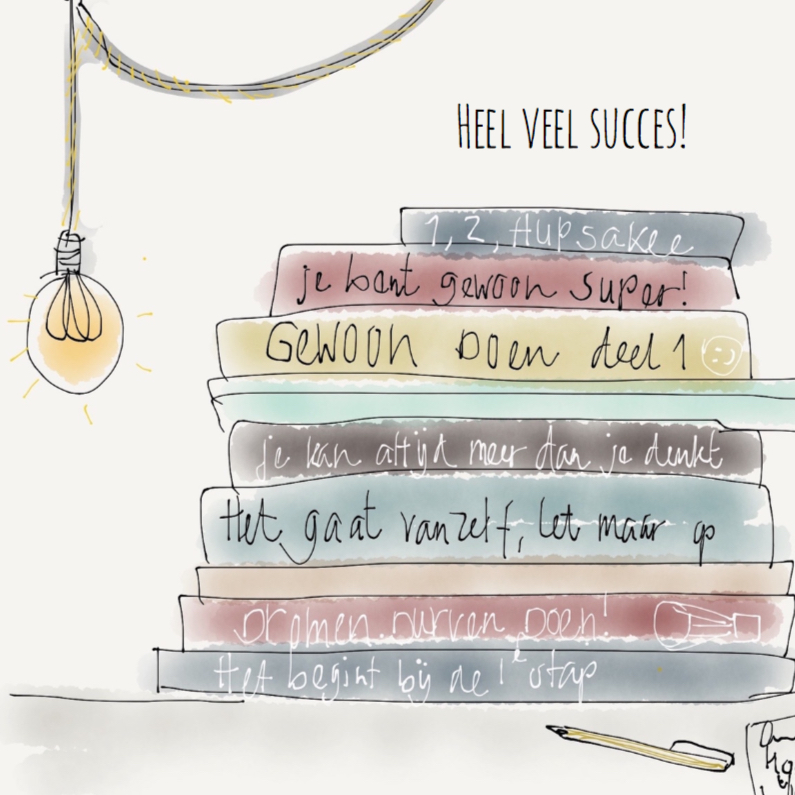 HEEL VEEL SUCCES!
1, 2, Hupsakee
je bent gewoon super!
Gewoon Doen deel 1
je kan altijd meer dan je denkt
Het gaat vanzelf, let maar op
Dromen. Durven. Doen!
Het begint bij de 1e stap